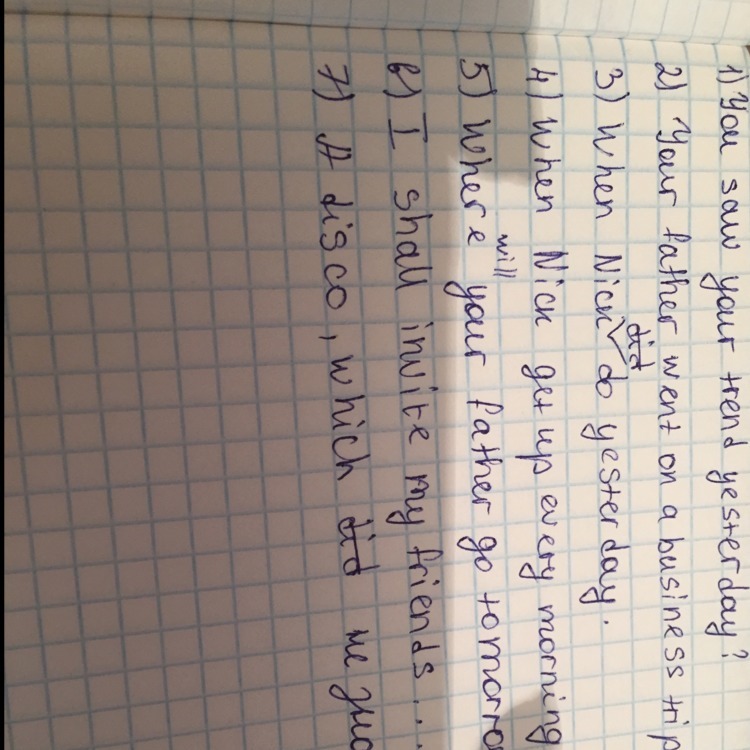 1) You saw your trend yesterday?
2) Your father went on a business trip
3) When Nick did do yesterday.
4) When Nick get up every morning
5) Where will your father go tomorro
6) I shall invite my friends...
7) A disco, which did не